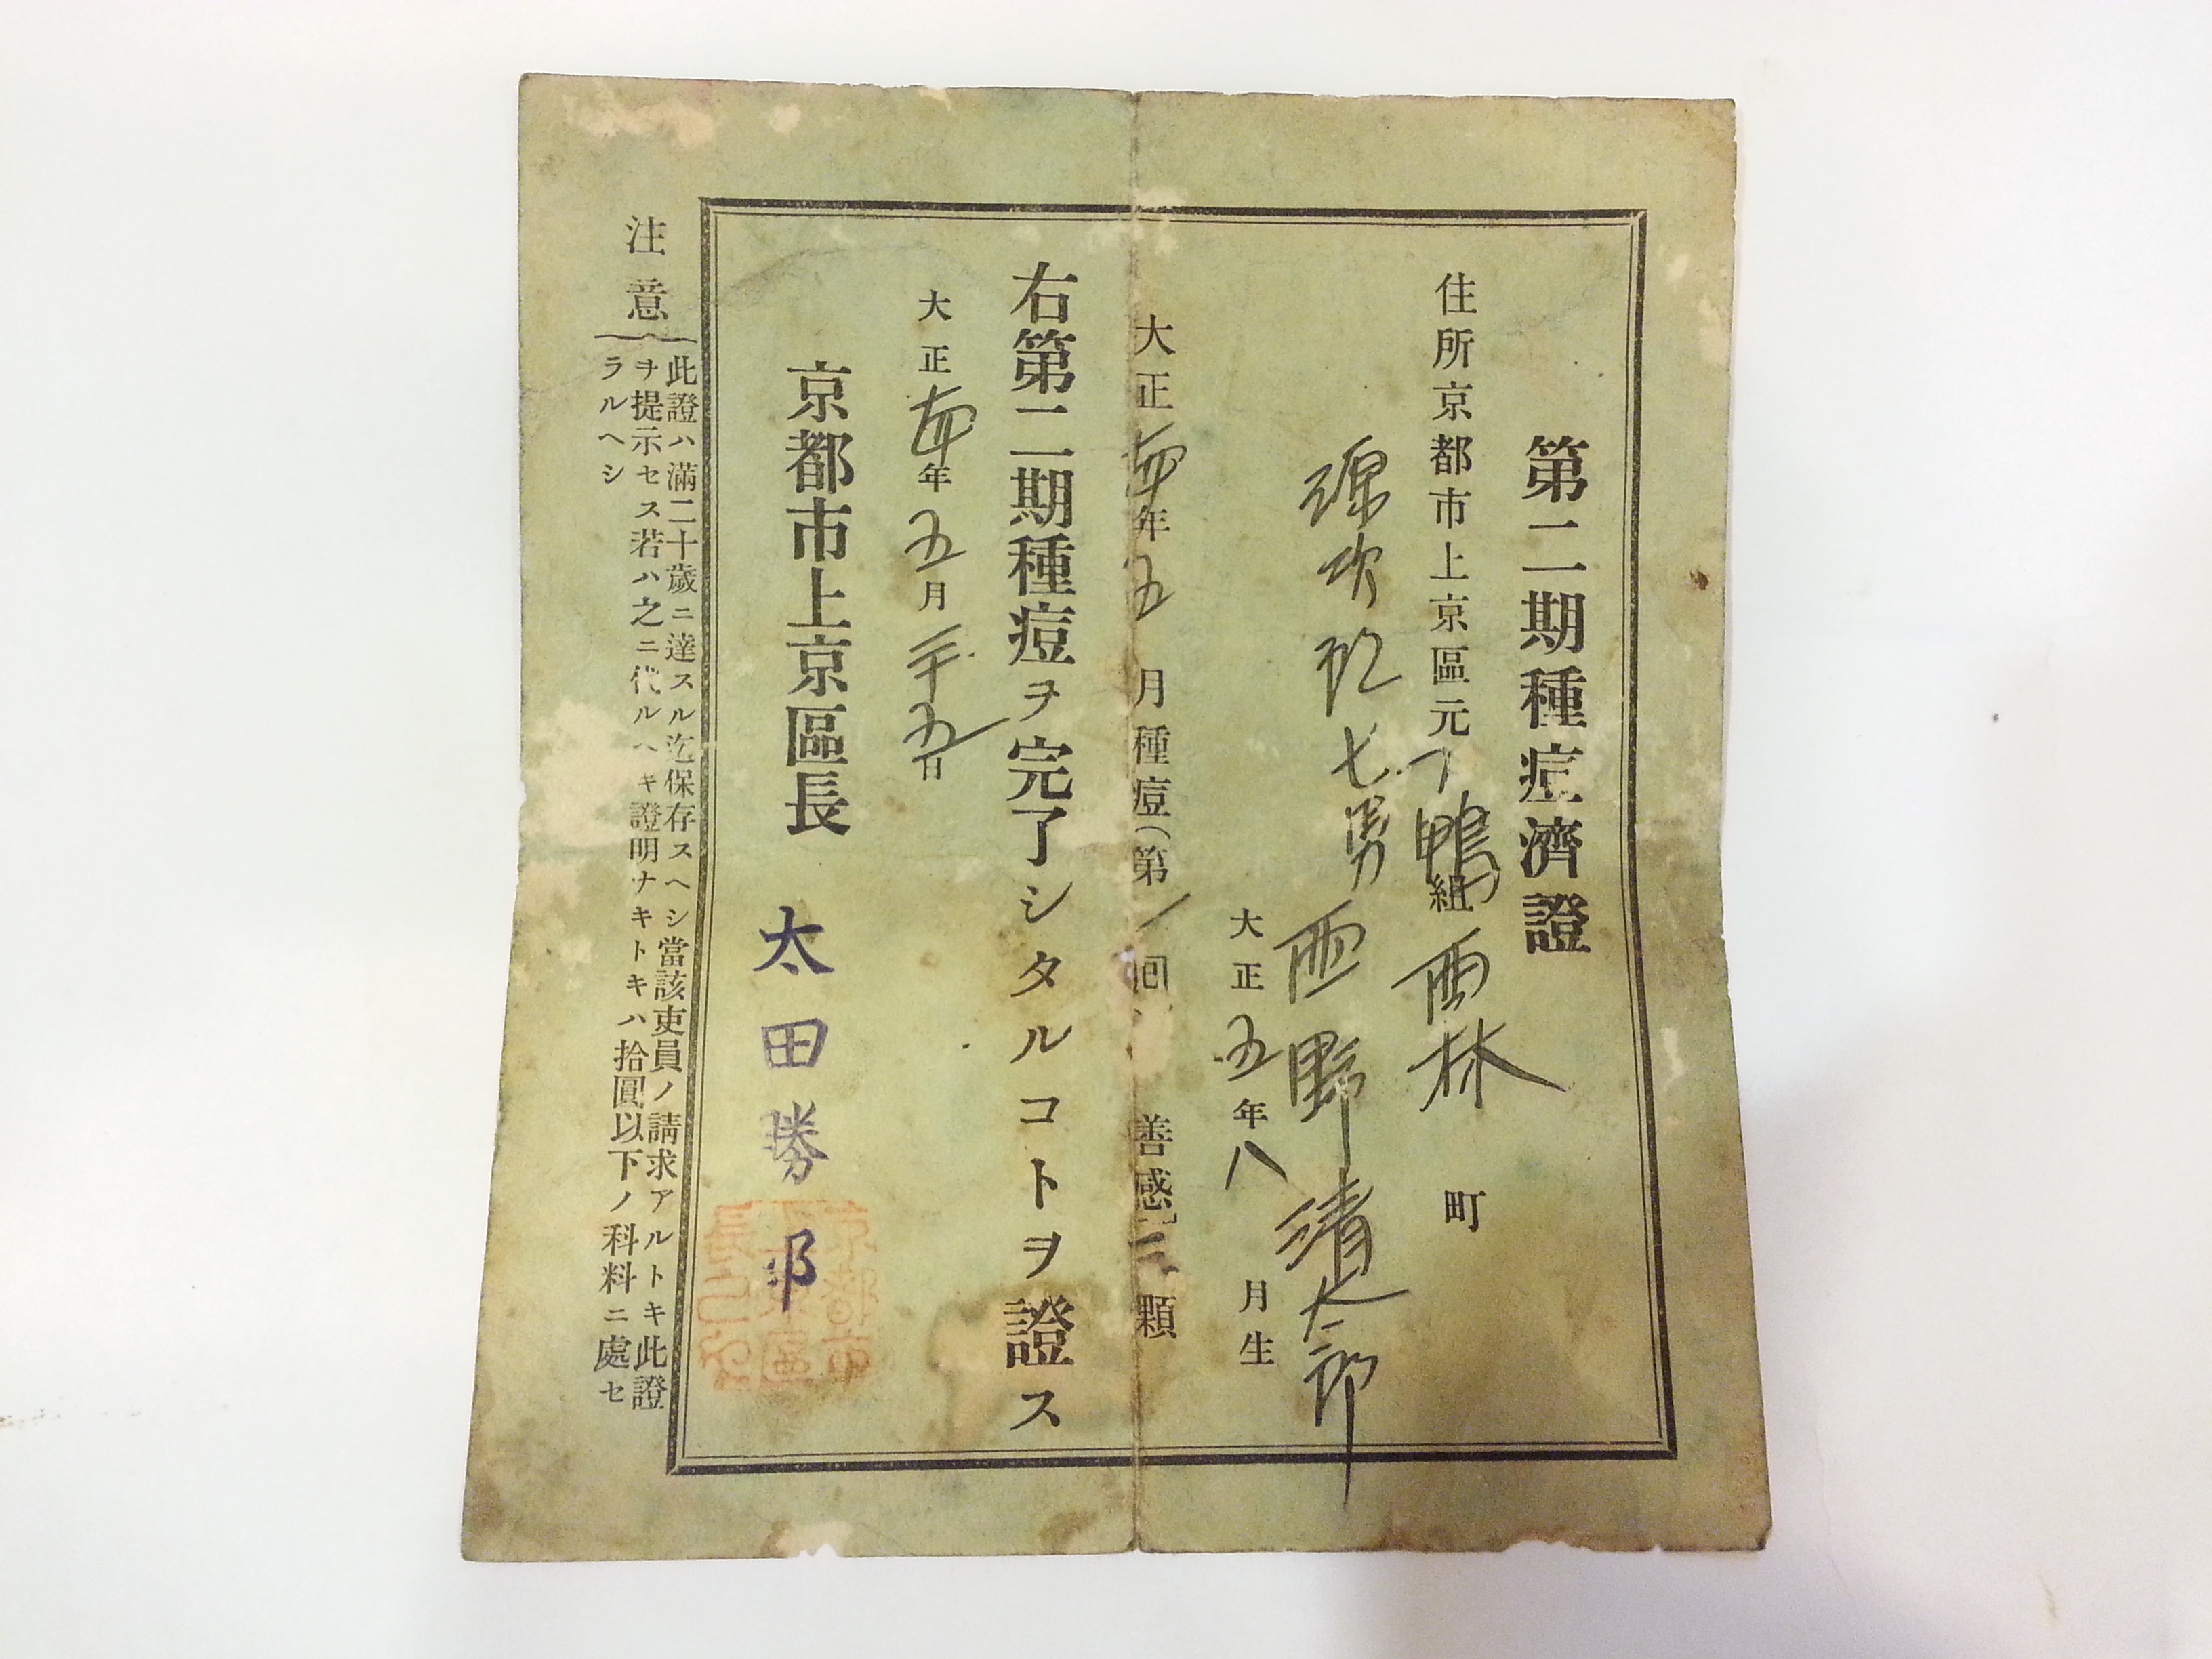 第二期種痘濟證
住所京都市上京區元下鴨組西林町
源次郎七男西野清太郎
大正五年八月生
大正年五月種痘(第一回、善感三顆
右第二期種痘ヲ完了シタルコトヲ證ス
大正年五月二十五日
京都市上京區長太田勝郎
注意
此證ハ滿二十歲ニ達スル迄保存スヘシ當該吏員ノ請求アルトキ此證
ヲ提示セス若ハ之ニ代ルヘキ證明ナキトキハ拾圓以下ノ科料ニ處セ
ラルヘシ